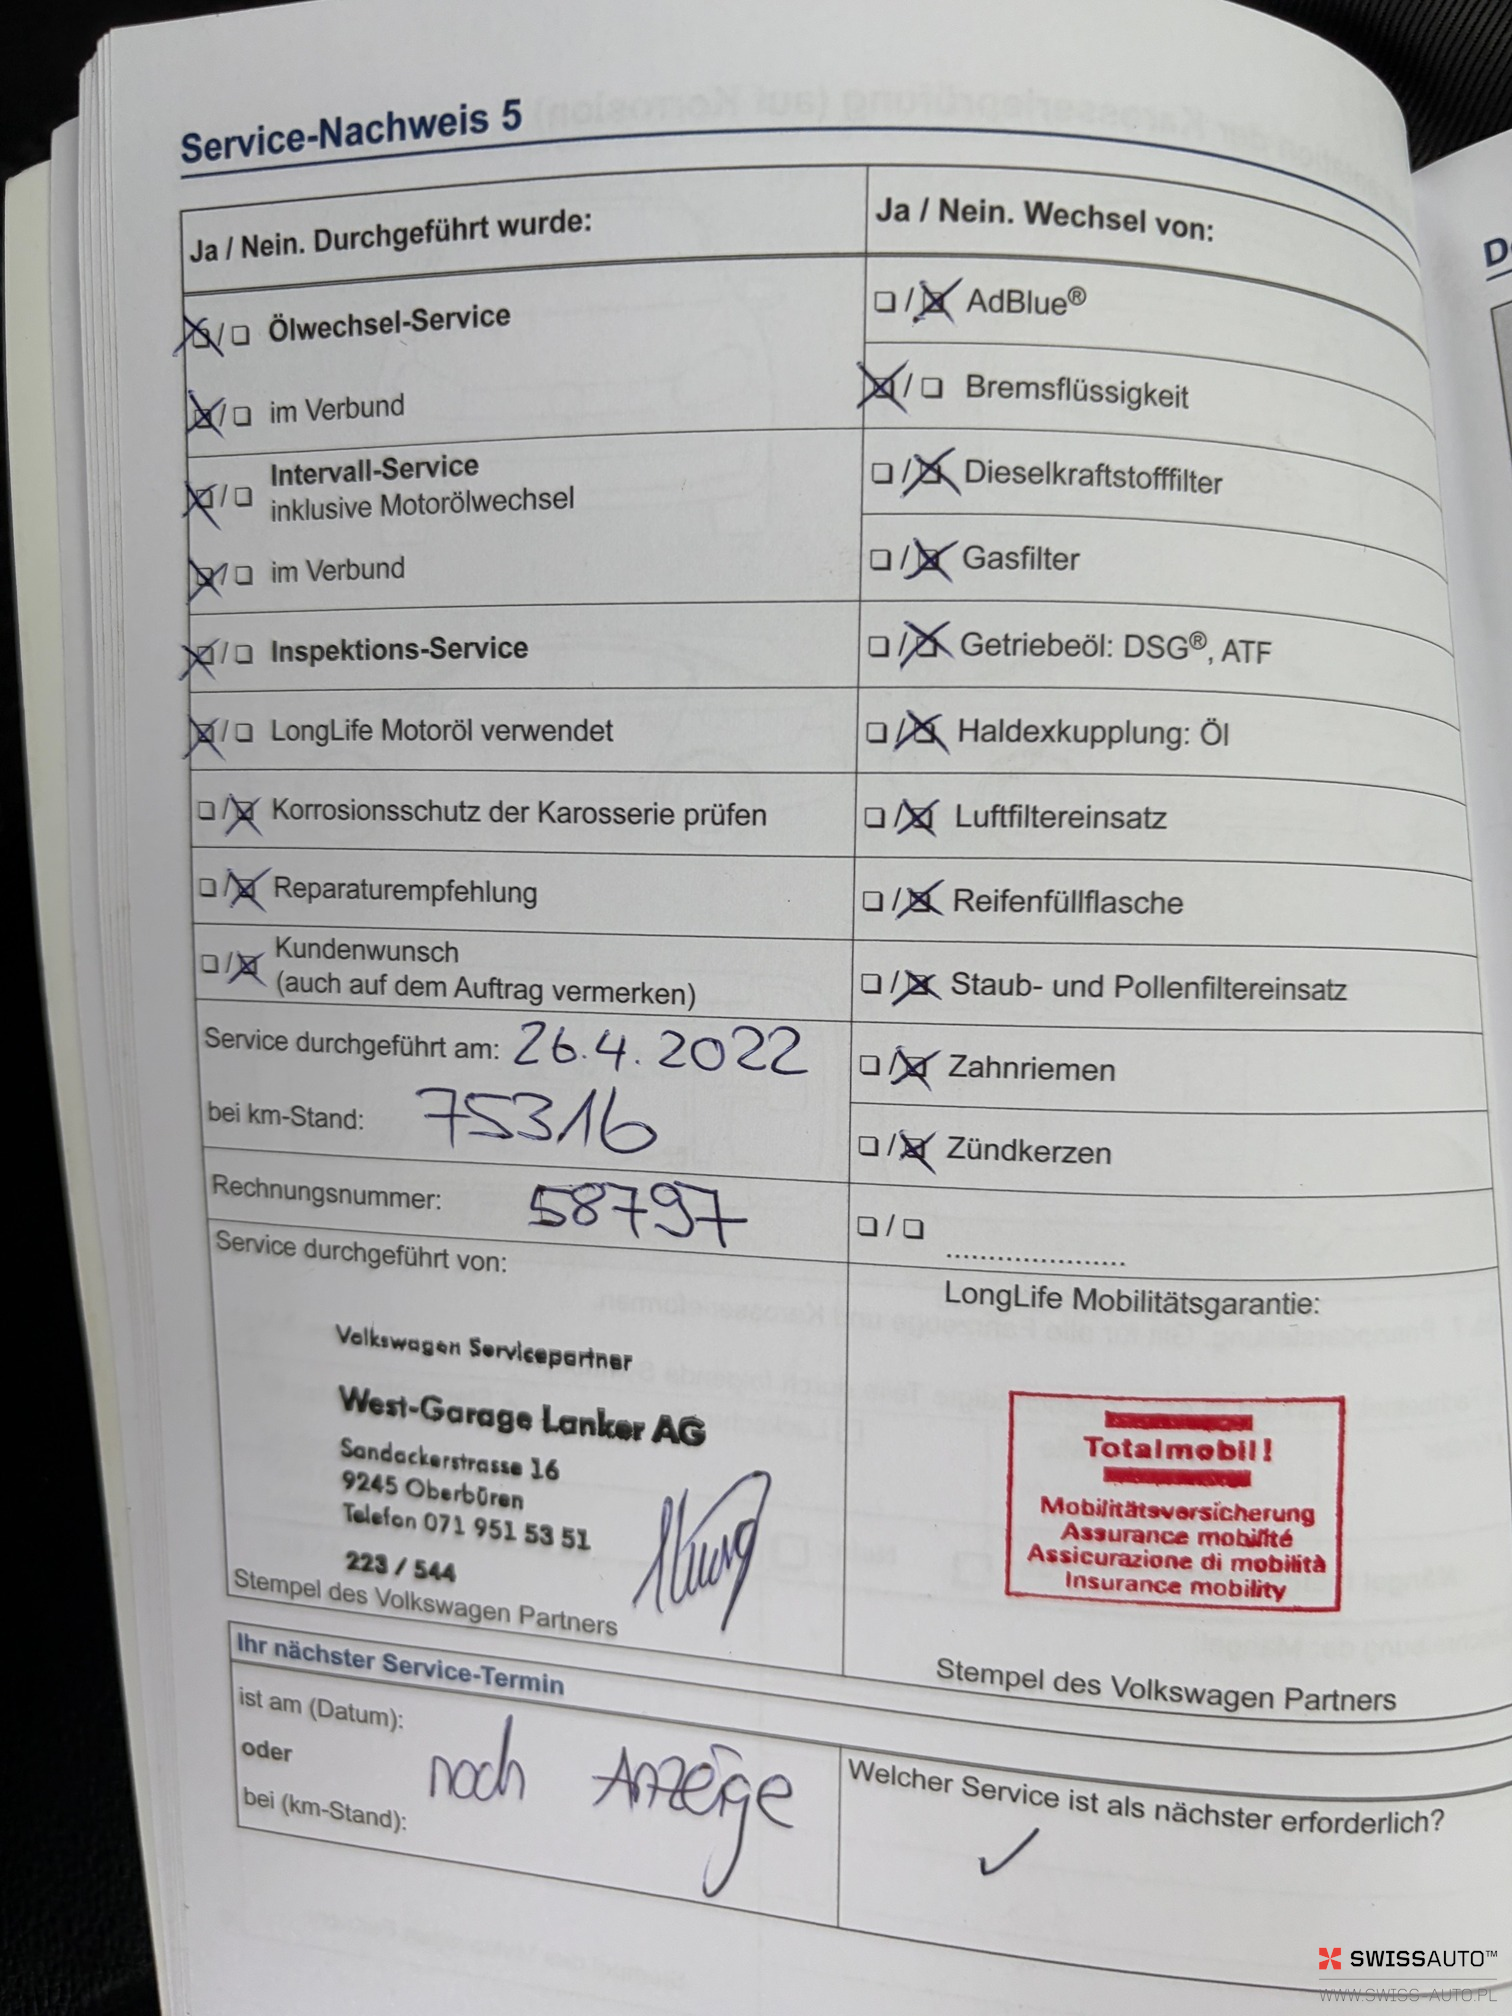 Service-Nachweis 5
Ja / Nein. Durchgeführt wurde:
Ölwechsel-Service
im Verbund
Intervall-Service
inklusive Motorölwechsel
im Verbund
Inspektions-Service
LongLife Motoröl verwendet
Korrosionsschutz der Karosserie prüfen
Reparaturempfehlung
Kundenwunsch
(auch auf dem Auftrag vermerken)
Service durchgeführt am: 26.4.2022
bei km-Stand: 75316
Rechnungsnummer: 58797
Service durchgeführt von:
Volkswagen Servicepartner
West-Garage Lanker AG
Sandackerstrasse 16
9245 Oberbüren
Telefon 071 951 53 51
223 / 544
Stempel des Volkswagen Partners
Ja / Nein. Wechsel von:
AdBlue®
Bremsflüssigkeit
Dieselkraftstofffilter
Gasfilter
Getriebeöl: DSG®, ATF
Haldexkupplung: Öl
Luftfiltereinsatz
Reifenfüllflasche
Staub- und Pollenfiltereinsatz
Zahnriemen
Zündkerzen
LongLife Mobilitätsgarantie:
Totalmobil!
Mobilitätsversicherung
Assurance mobilité
Assicurazione di mobilità
Insurance mobility
Stempel des Volkswagen Partners
Ihr nächster Service-Termin
ist am (Datum):
oder
bei (km-Stand):
noch Anzeige
Welcher Service ist als nächster erforderlich?
SWISSAUTO™
WWW.SWISS-AUTO.PL